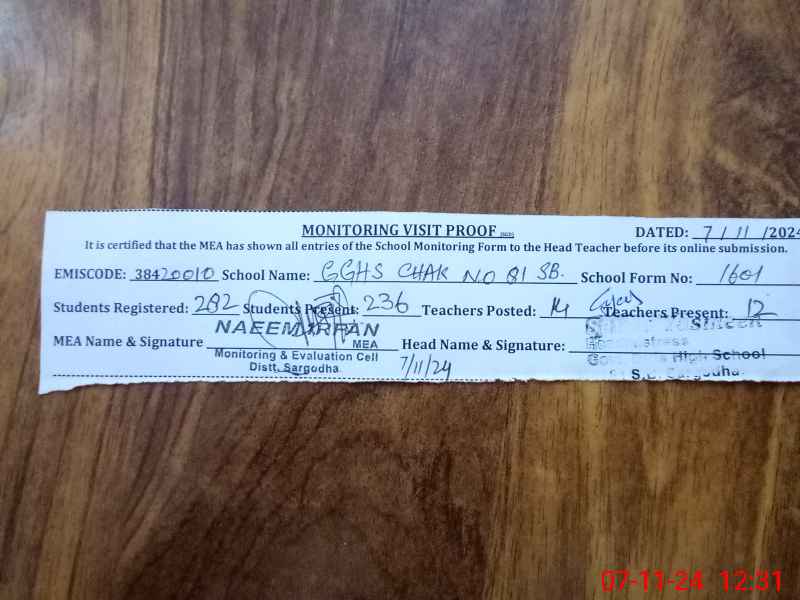 MONITORING VISIT PROOF
DATED: 7/11/2024
It is certified that the MEA has shown all entries of the School Monitoring Form to the Head Teacher before its online submission.
EMISCODE: 38420010 School Name: GGHS CHAK NO 81 SB. School Form No: 1601
Students Registered: 282 Students Present: 236 Teachers Posted: 14 Teachers Present: 12
NAEEM IRFAN
MEA Name & Signature MEA Head Name & Signature:
Monitoring & Evaluation Cell
Distt. Sargodha
7/11/24
Headmistress
Govt. Girls High School
S.B. Sargodha
07-11-24 12:31